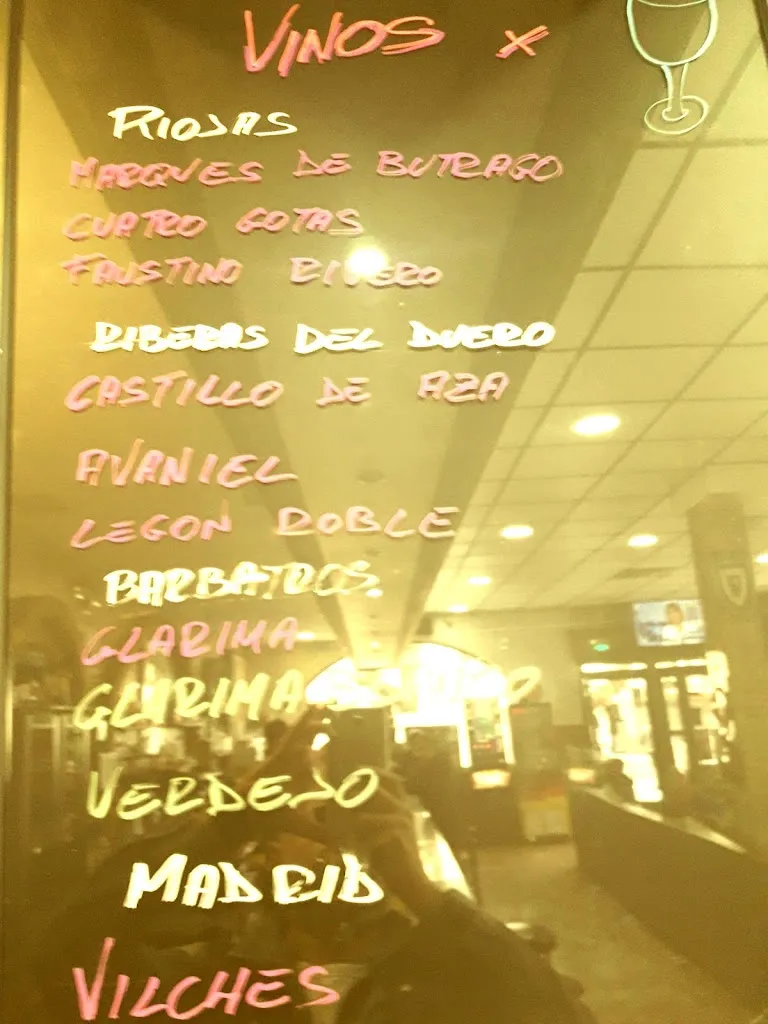 VINOS x
RIOJAS
MARQUES DE BUTRAGO
CUATRO GOTAS
FAUSTINO RIVERO
RIBERAS DEL DUERO
CASTILLO DE AZA
AVANIEL
LEGON ROBLE
BARBATROS
GLARIMA
GLARIMA
VERDEJO
MADRID
VILCHES